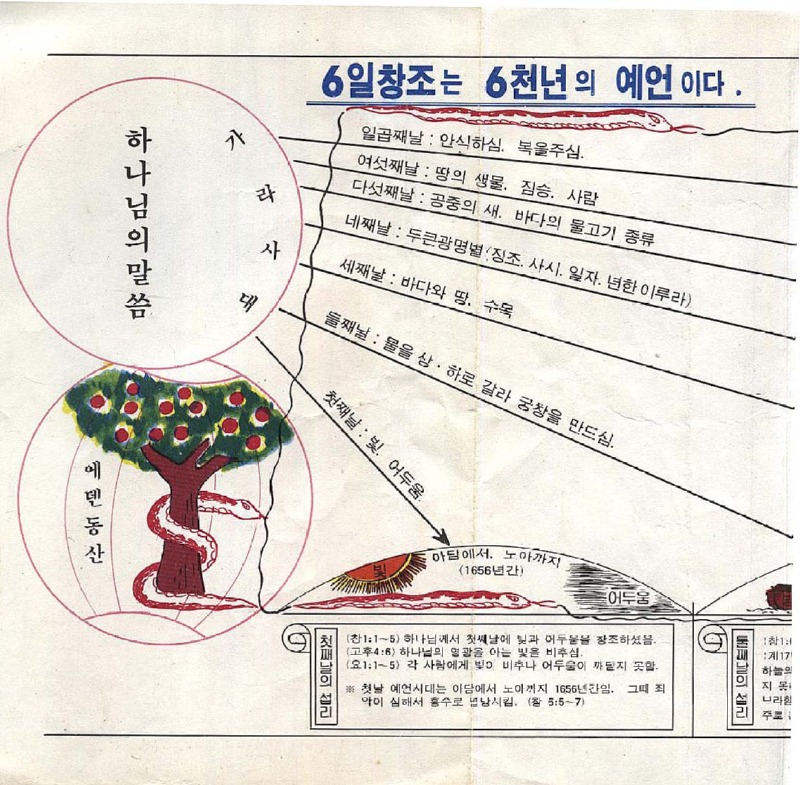 6일창조는 6천년의 예언이다.
하나님의말씀
가라사대
일곱째날 : 안식하심. 복을주심.
여섯째날 : 땅의 생물. 짐승. 사람
다섯째날 : 공중의 새. 바다의 물고기 종류
네째날 : 두큰광명별 (징조. 사시. 일자. 년한이루라)
세째날 : 바다와 땅. 수목
둘째날 : 물을 상·하로 갈라 궁창을 만드심.
첫째날 : 빛. 어두움.
에덴동산
빛
아담에서. 노아까지
(1656년간)
어두움
첫째날의 섭리
(창1:1~5) 하나님께서 첫째날에 빛과 어두움을 창조하셨음.
(고후4:6) 하나님의 영광을 아는 빛을 비추심.
(요1:1~5) 각 사람에게 빛이 비추나 어두움이 깨닫지 못함.
※ 첫날 예언시대는 아담에서 노아까지 1656년간임. 그때 죄
악이 심해서 홍수로 멸망시킴. (창 6:5~7)
둘째날의 섭리
하늘의
지 못
주로